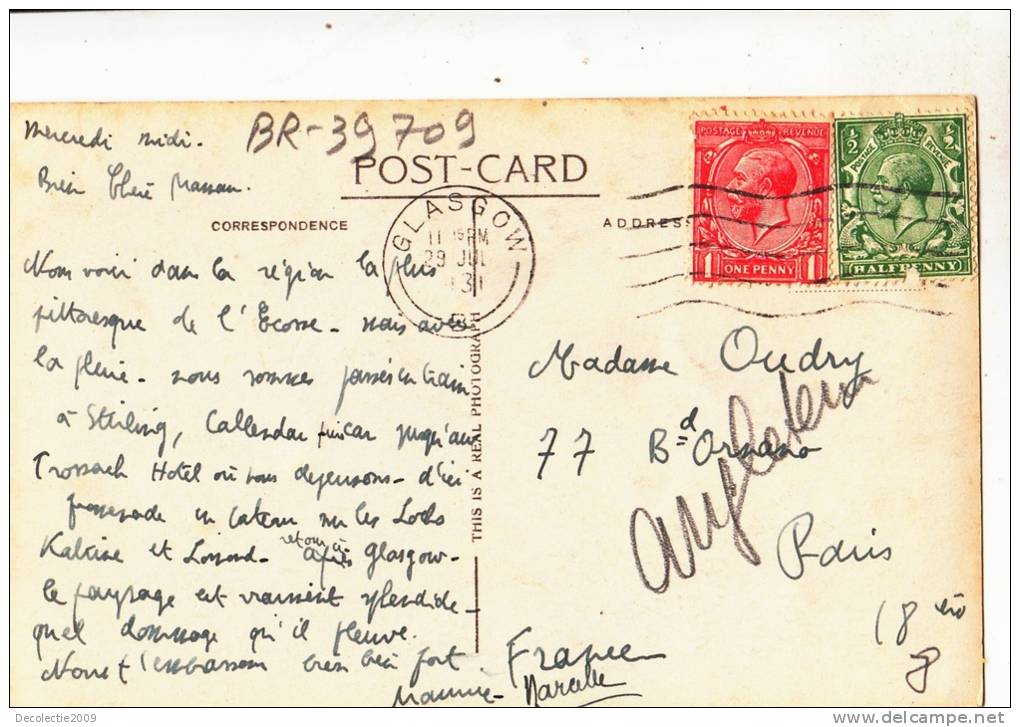 mercredi midi.
BR-39709
POST-CARD
Bien Chère Maman.
CORRESPONDENCE
ADDRESS
GLASGOW
11 15 PM
29 JUL
31
B
POSTAGE REVENUE
1 ONE PENNY 1
½ ½
POSTAGE REVENUE
HALFPENNY
Nous voici dans la région la plus
pittoresque de l'Ecosse - mais avec
la pluie - nous sommes passés en train
à Stirling, Callendar puis car jusqu'au
Trossach Hotel où nous dejeunons - d'ici
promenade en bateau sur les Lochs
Katrine et Lomond - retour à
Glasgow -
le paysage est vraiment splendide -
quel dommage qu'il pleuve.
Nous t'embrassons bien bien fort.
Marcelle
THIS IS A REAL PHOTOGRAPH
Madame Oudry
77 Bd Ornano
Paris
18
8
France
Angleterre
Decolectie2009
delcampe.net